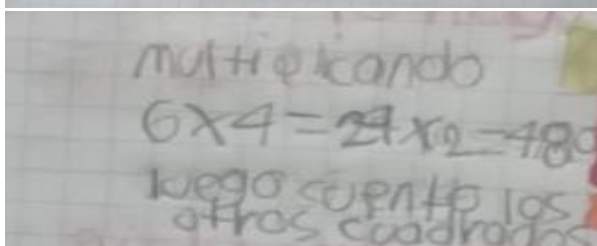 multiplicando
6x4=24x2=480
luego cuente los
otros cuadrados